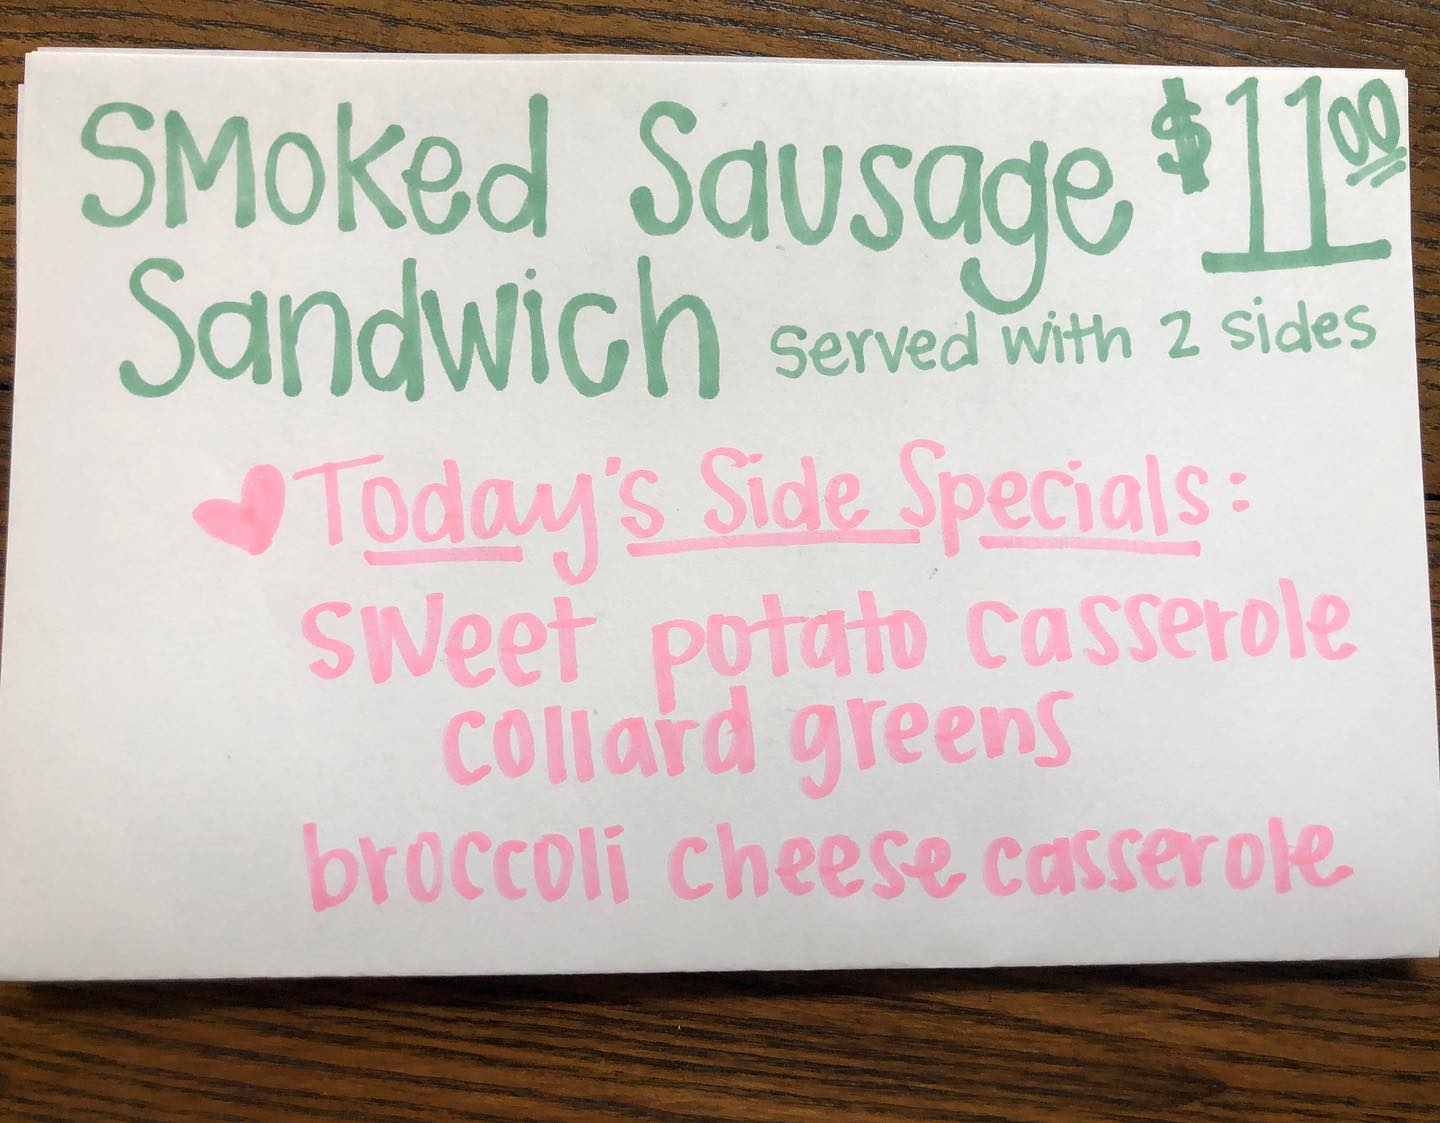 Smoked Sausage $11.00
Sandwich served with 2 sides
Today's Side Specials:
sweet potato casserole
collard greens
broccoli cheese casserole